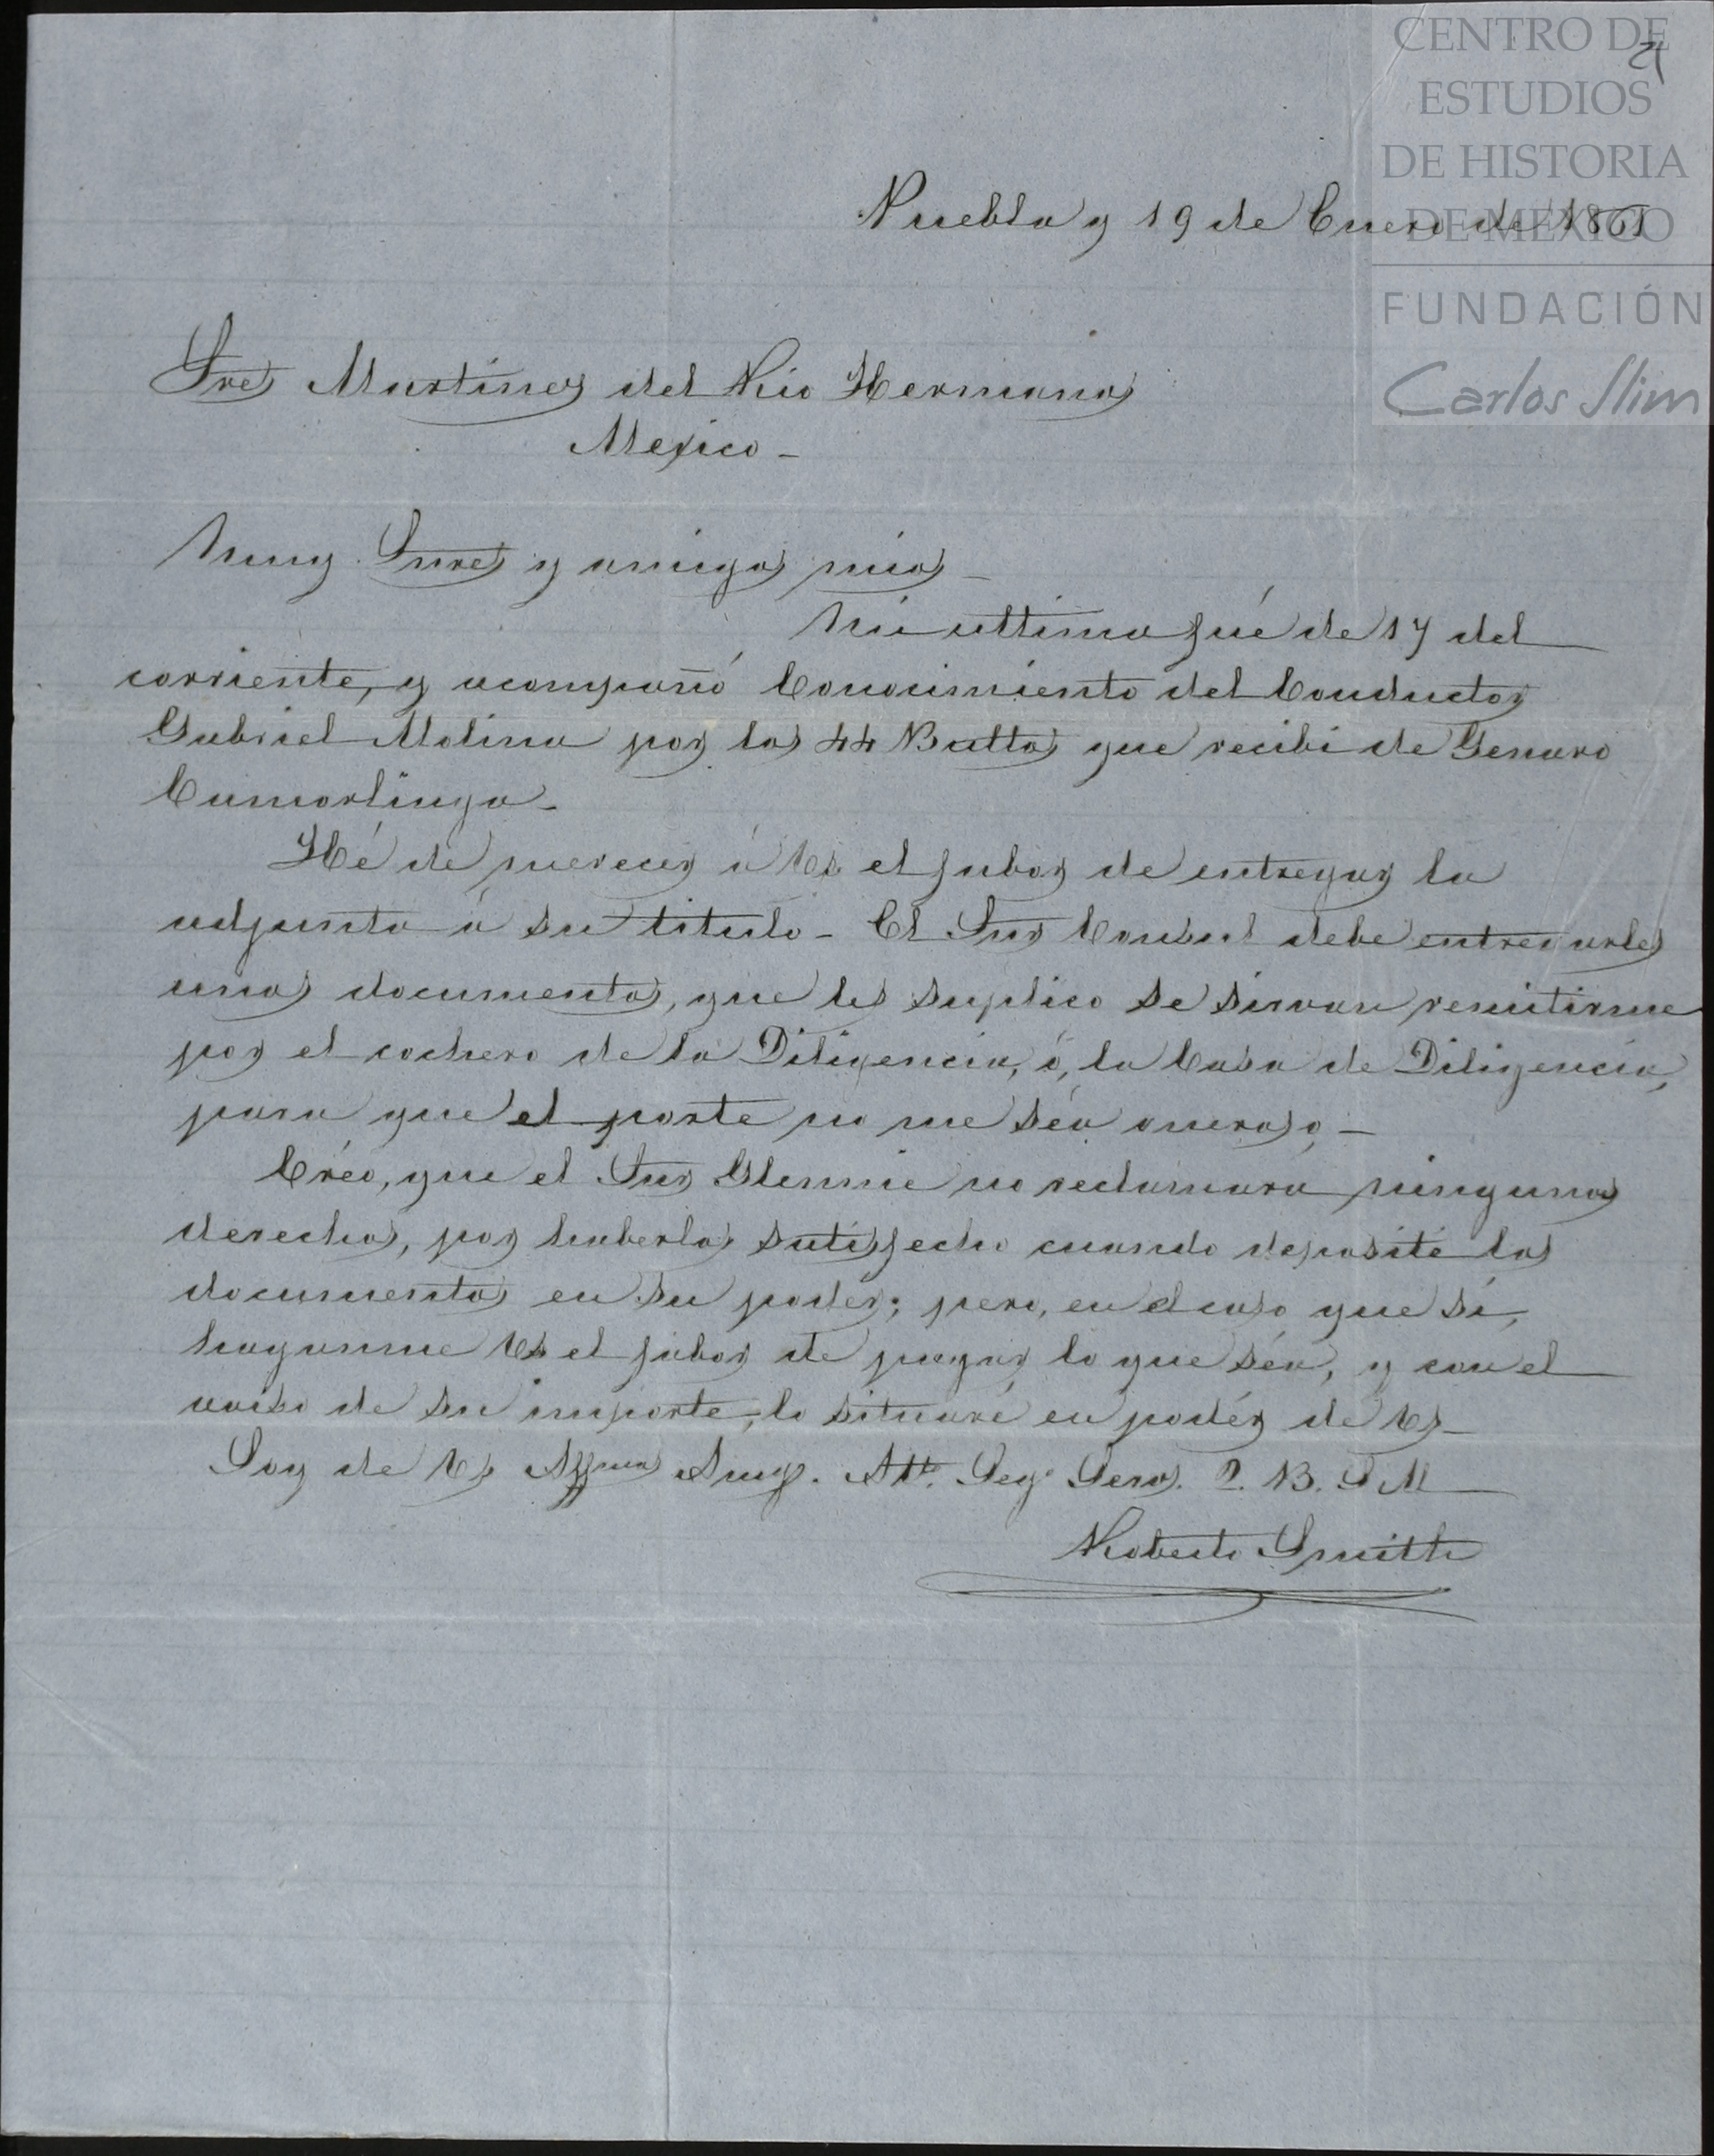 CENTRO DE
ESTUDIOS
DE HISTORIA
DE MEXICO
FUNDACIÓN
Carlos Slim
21
Puebla y 19 de Enero de 1861
Sres Martinez del Rio Hermanos
Mexico -
Muy Snres y amigos mios -
Mi ultima fué de 17 del
corriente, y acompañó Conocimiento del Conductor
Gabriel Molina por los 44 Bultos que recibi de Genaro
Camorlinga -
Hé de merecer á Vs el fabor de entregar la
adjunta á su titulo - El Snr Consul debe entregarles
unos documentos, que les suplico se sirvan remitirme
por el cochero de la Diligencia, ó, la Casa de Diligencia,
para que el porte no me séa oneroso -
Créo, que el Snr Glennie no reclamara ningunos
derechos, por haberlos satisfecho cuando deposité los
documentos en su podér; pero, en el caso que si,
haganme Vs el fabor de pagar lo que séa, y con el
aviso de su importe, lo situaré en podér de Vs -
Soy de Vs Affmo Amgo. Atto. Sego Servr. Q. B. S M
Roberto Smith